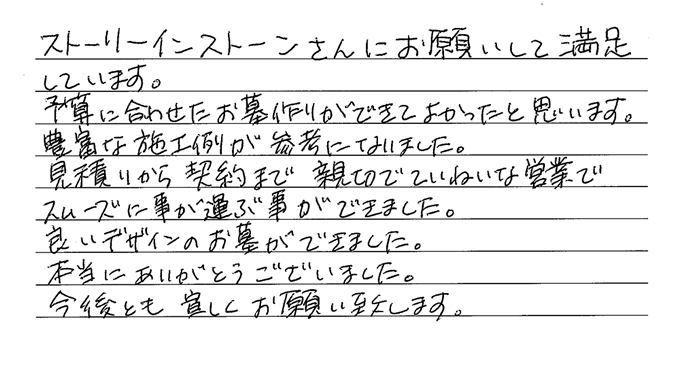 ストーリーインストーンさんにお願いして満足
しています。
予算に合わせたお墓作りができてよかったと思います。
豊富な施工例が参考になりました。
見積りから契約まで親切でていねいな営業で
スムーズに事が運ぶ事ができました。
良いデザインのお墓ができました。
本当にありがとうございました。
今後とも宜しくお願い致します。